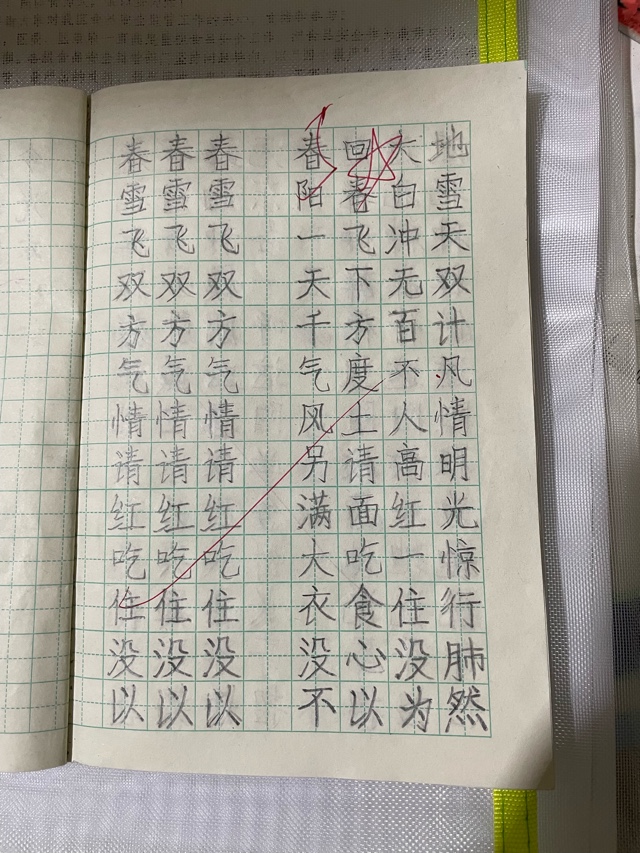 春春春 春回大地
雪雪雪 阳春白雪
飞飞飞 一飞冲天
双双双 天下无双
方方方 千方百计
气气气 气度不凡
情情情 风土人情
请请请 另请高明
红红红 满面红光
吃吃吃 大吃一惊
住住住 衣食住行
没没没 没心没肺
以以以 不以为然